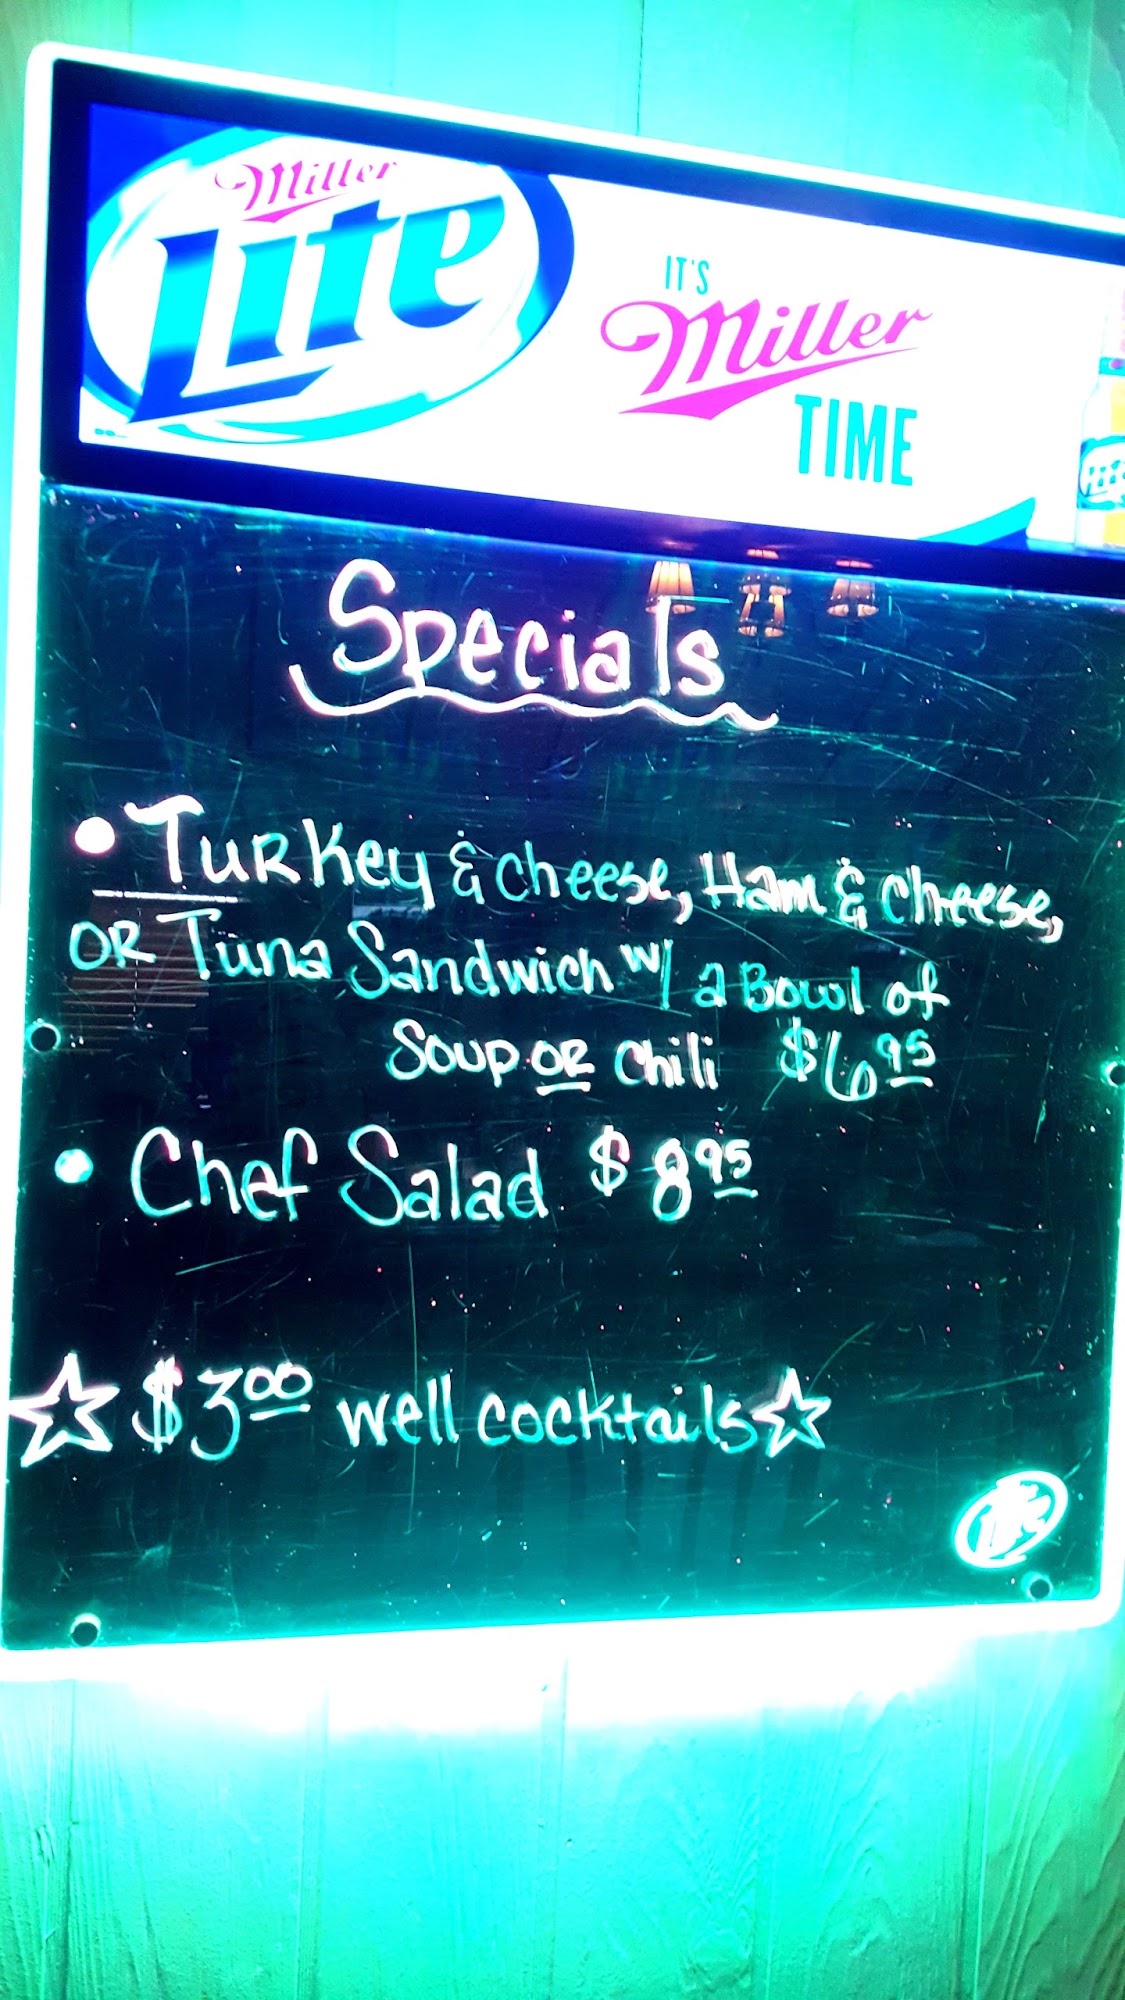 Miller
Lite
IT'S
Miller
TIME
Specials
• Turkey & cheese, Ham & cheese,
OR Tuna Sandwich w/ a Bowl of
Soup OR chili $6.95
• Chef Salad $8.95
☆ $3.00 well cocktails ☆
Lite